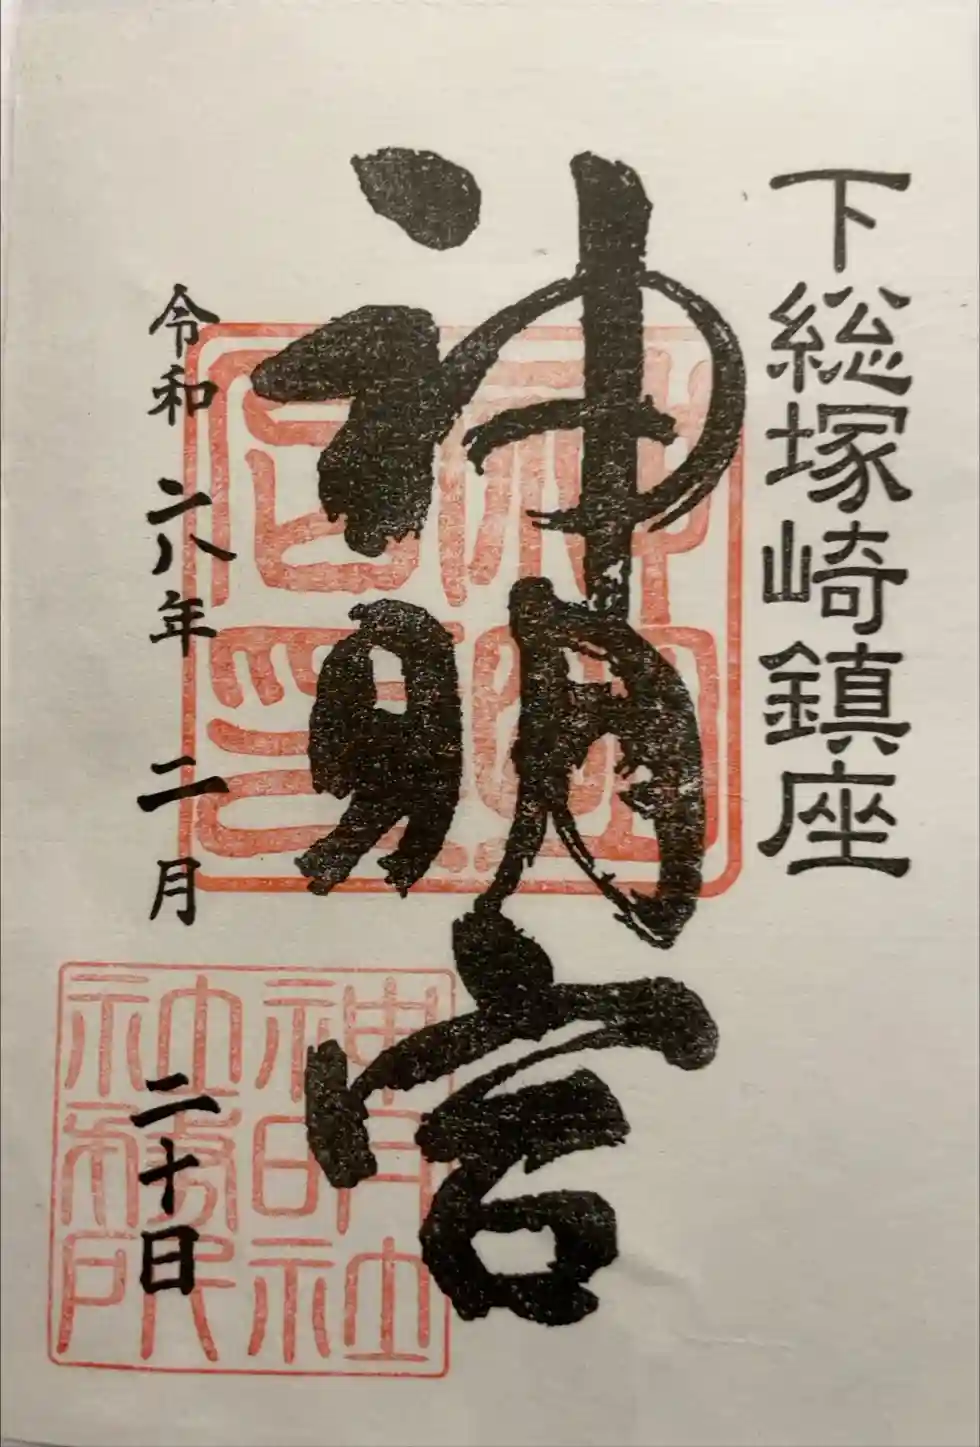 下総塚崎鎮座
神明宮
令和二八年二月二十日
神明社
社務所